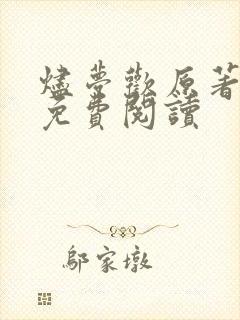 燼夢歡原著
免費閱讀
鄔家墩